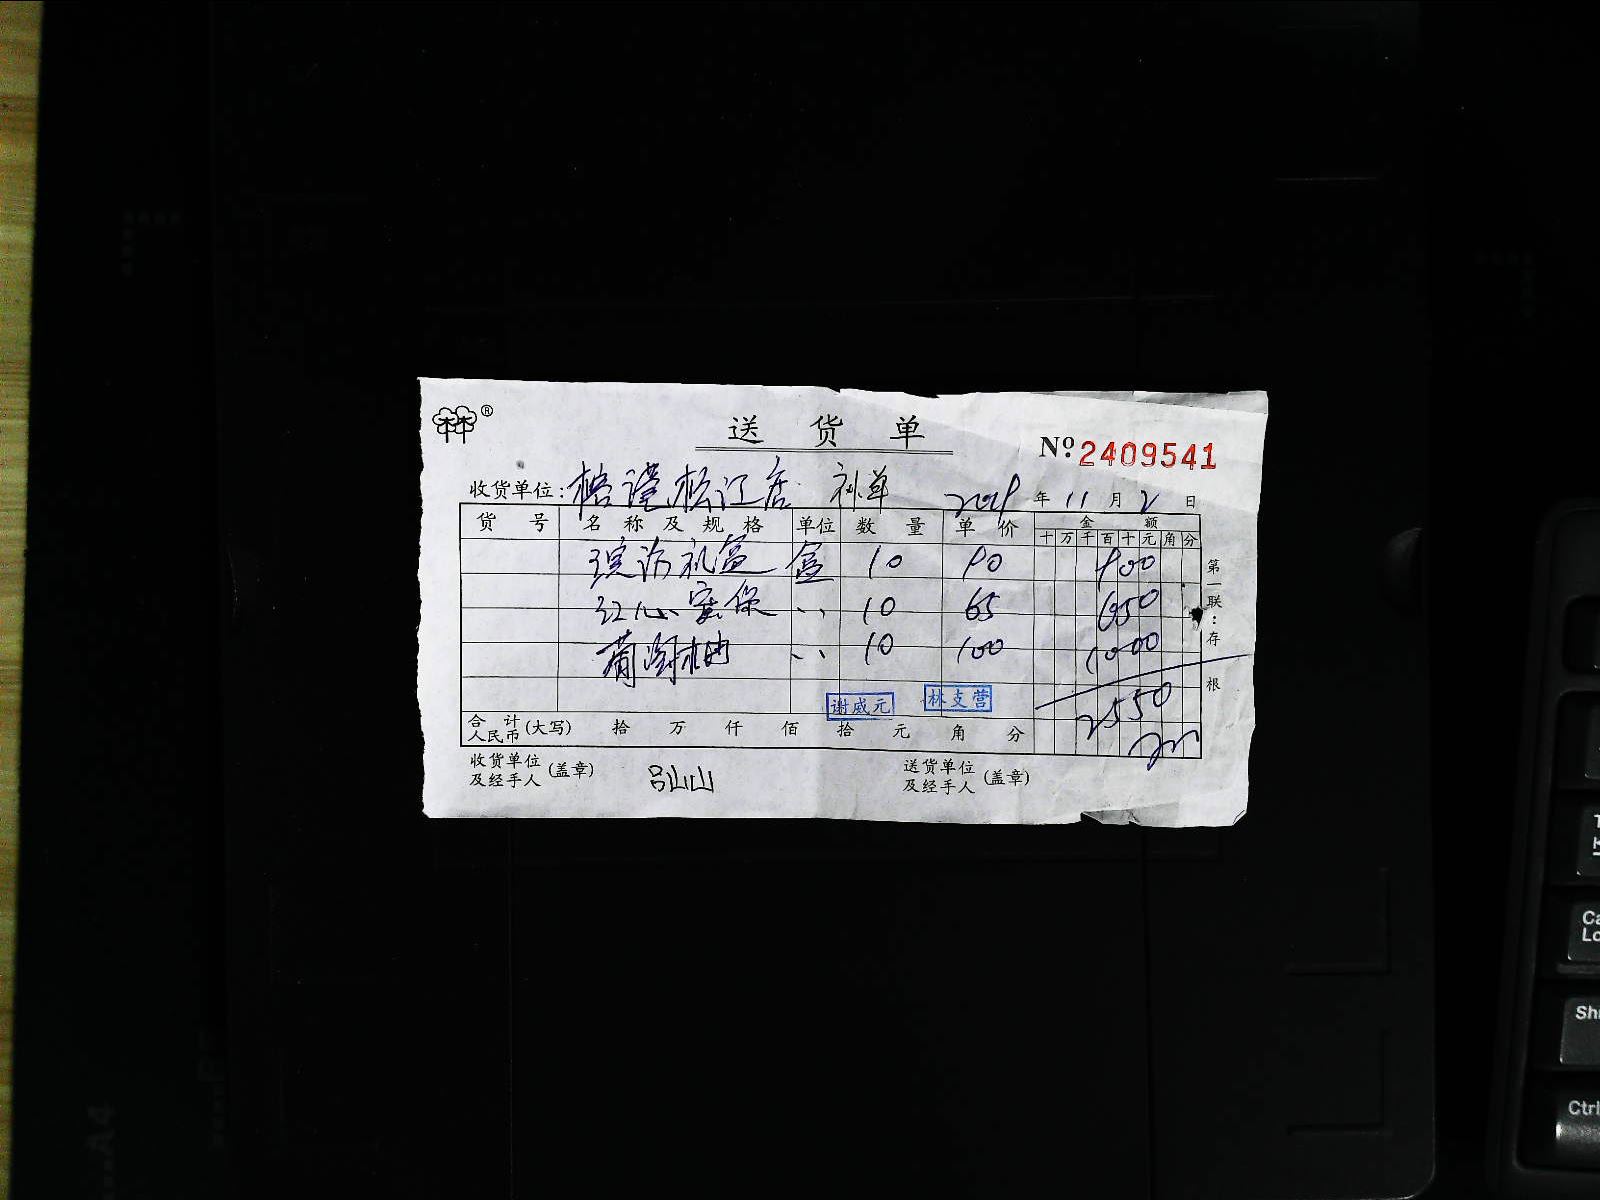 ®
送货单
№ 2409541
收货单位: 松江店 补单 2019年11月2日
货号 名称及规格 单位 数量 单价 金额
十万千百十元角分
礼盒 盒 10 90 900
红心蜜柚 〃 10 65 650
葡萄柚 〃 10 100 1000
2550
谢威元 林支营
合计人民币(大写) 拾 万 仟 佰 拾 元 角 分
收货单位及经手人(盖章) 吕山山 送货单位及经手人(盖章)
第一联:存根
A4
Ca
Lo
Shi
Ctrl